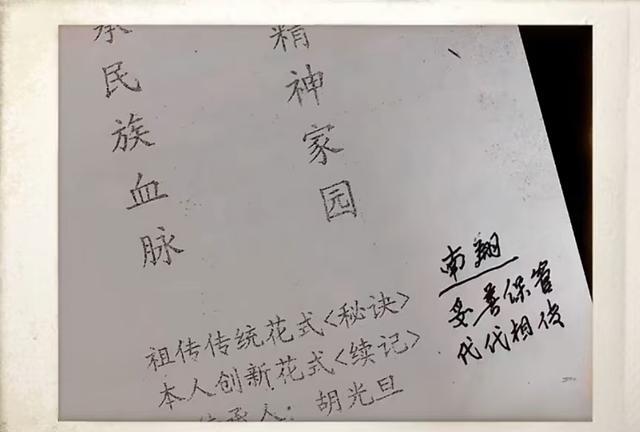 承民族血脉
精神家园
祖传传统花式<秘诀>
本人创新花式<续记>
传承人：胡光旦
南翔
妥善保管
代代相传